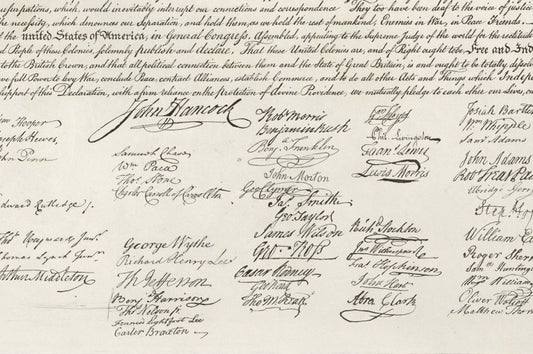 usurpations, which, would inevitably interrupt our connections and correspondence They too have been deaf to the voice of justice
the necessity, which denounces our Separation, and hold them, as we hold the rest of mankind, Enemies in War, in Peace Friends.
of the united States of America, in General Congress, Assembled, appealing to the Supreme Judge of the world for the rectitude
and by Authority of the good People of these Colonies, solemnly publish and declare, That these United Colonies are, and of Right ought to be Free and Ind
to the British Crown, and that all political connection between them and the State of Great Britain, is and ought to be totally dissolv
have full Power to levy War, conclude Peace, contract Alliances, establish Commerce, and to do all other Acts and Things which Indepen
support of this Declaration, with a firm reliance on the protection of divine Providence, we mutually pledge to each other our Lives, our
John Hancock
Wm Hooper
Joseph Hewes,
John Penn
Edward Rutledge /.
Thos Heyward Junr.
Thomas Lynch Junr.
Arthur Middleton
Samuel Chase
Wm Paca
Thos Stone
Charles Carroll of Carrollton
George Wythe
Richard Henry Lee
Th Jefferson
Benj Harrison
Thos Nelson jr.
Francis Lightfoot Lee
Carter Braxton
Robt Morris
Benjamin Rush
Benj. Franklin
John Morton
Geo Clymer
Jas. Smith
Geo. Taylor
James Wilson
Geo. Ross
Caesar Rodney
Geo Read
Tho M:Kean
Phil. Livingston
Frans. Lewis
Lewis Morris
Richd. Stockton
Jno Witherspoon
Fras. Hopkinson
John Hart
Abra Clark
Josiah Bartlett
Wm. Whipple
Saml Adams
John Adams
Robt Treat Paine
Elbridge Gerry
Step Hop
William Ellery
Roger Sherman
Saml Huntington
Wm Williams
Oliver Wolcott
Matthew Thornton